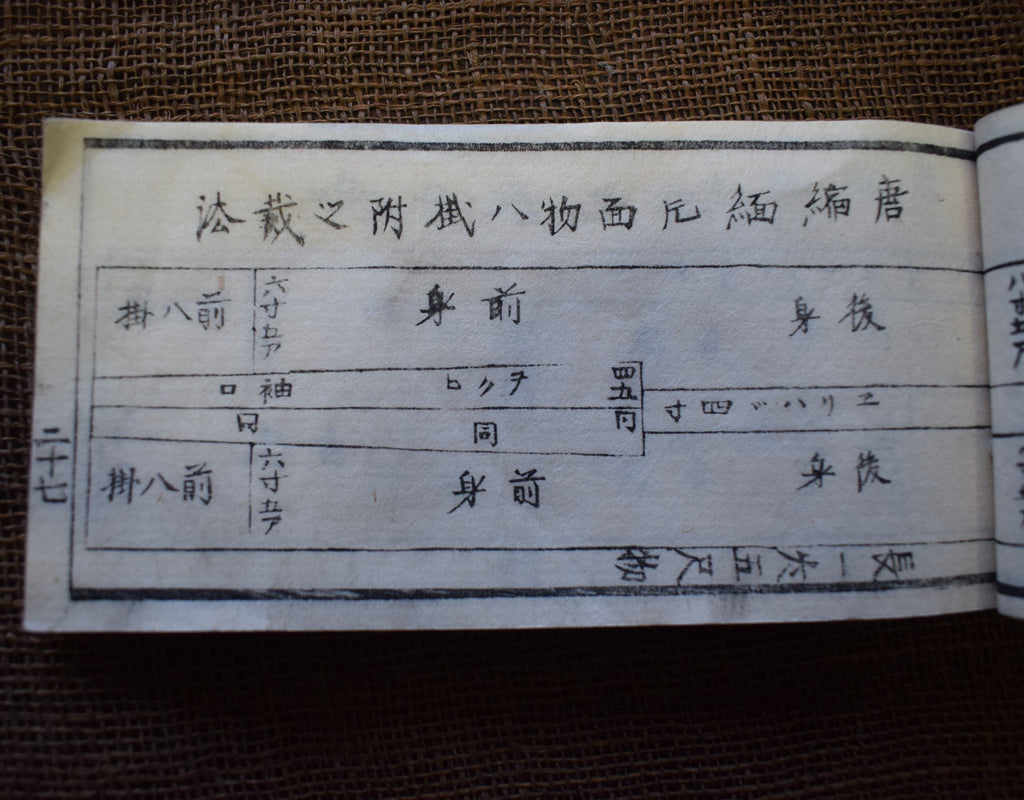 唐縮緬片面物八掛附之裁法
後身
前身
六寸五ア
前八掛
四五
ヱリハヾ四寸
ヲクヒ
袖口
同
同
後身
前身
六寸五ア
前八掛
長一丈五尺物
二十七